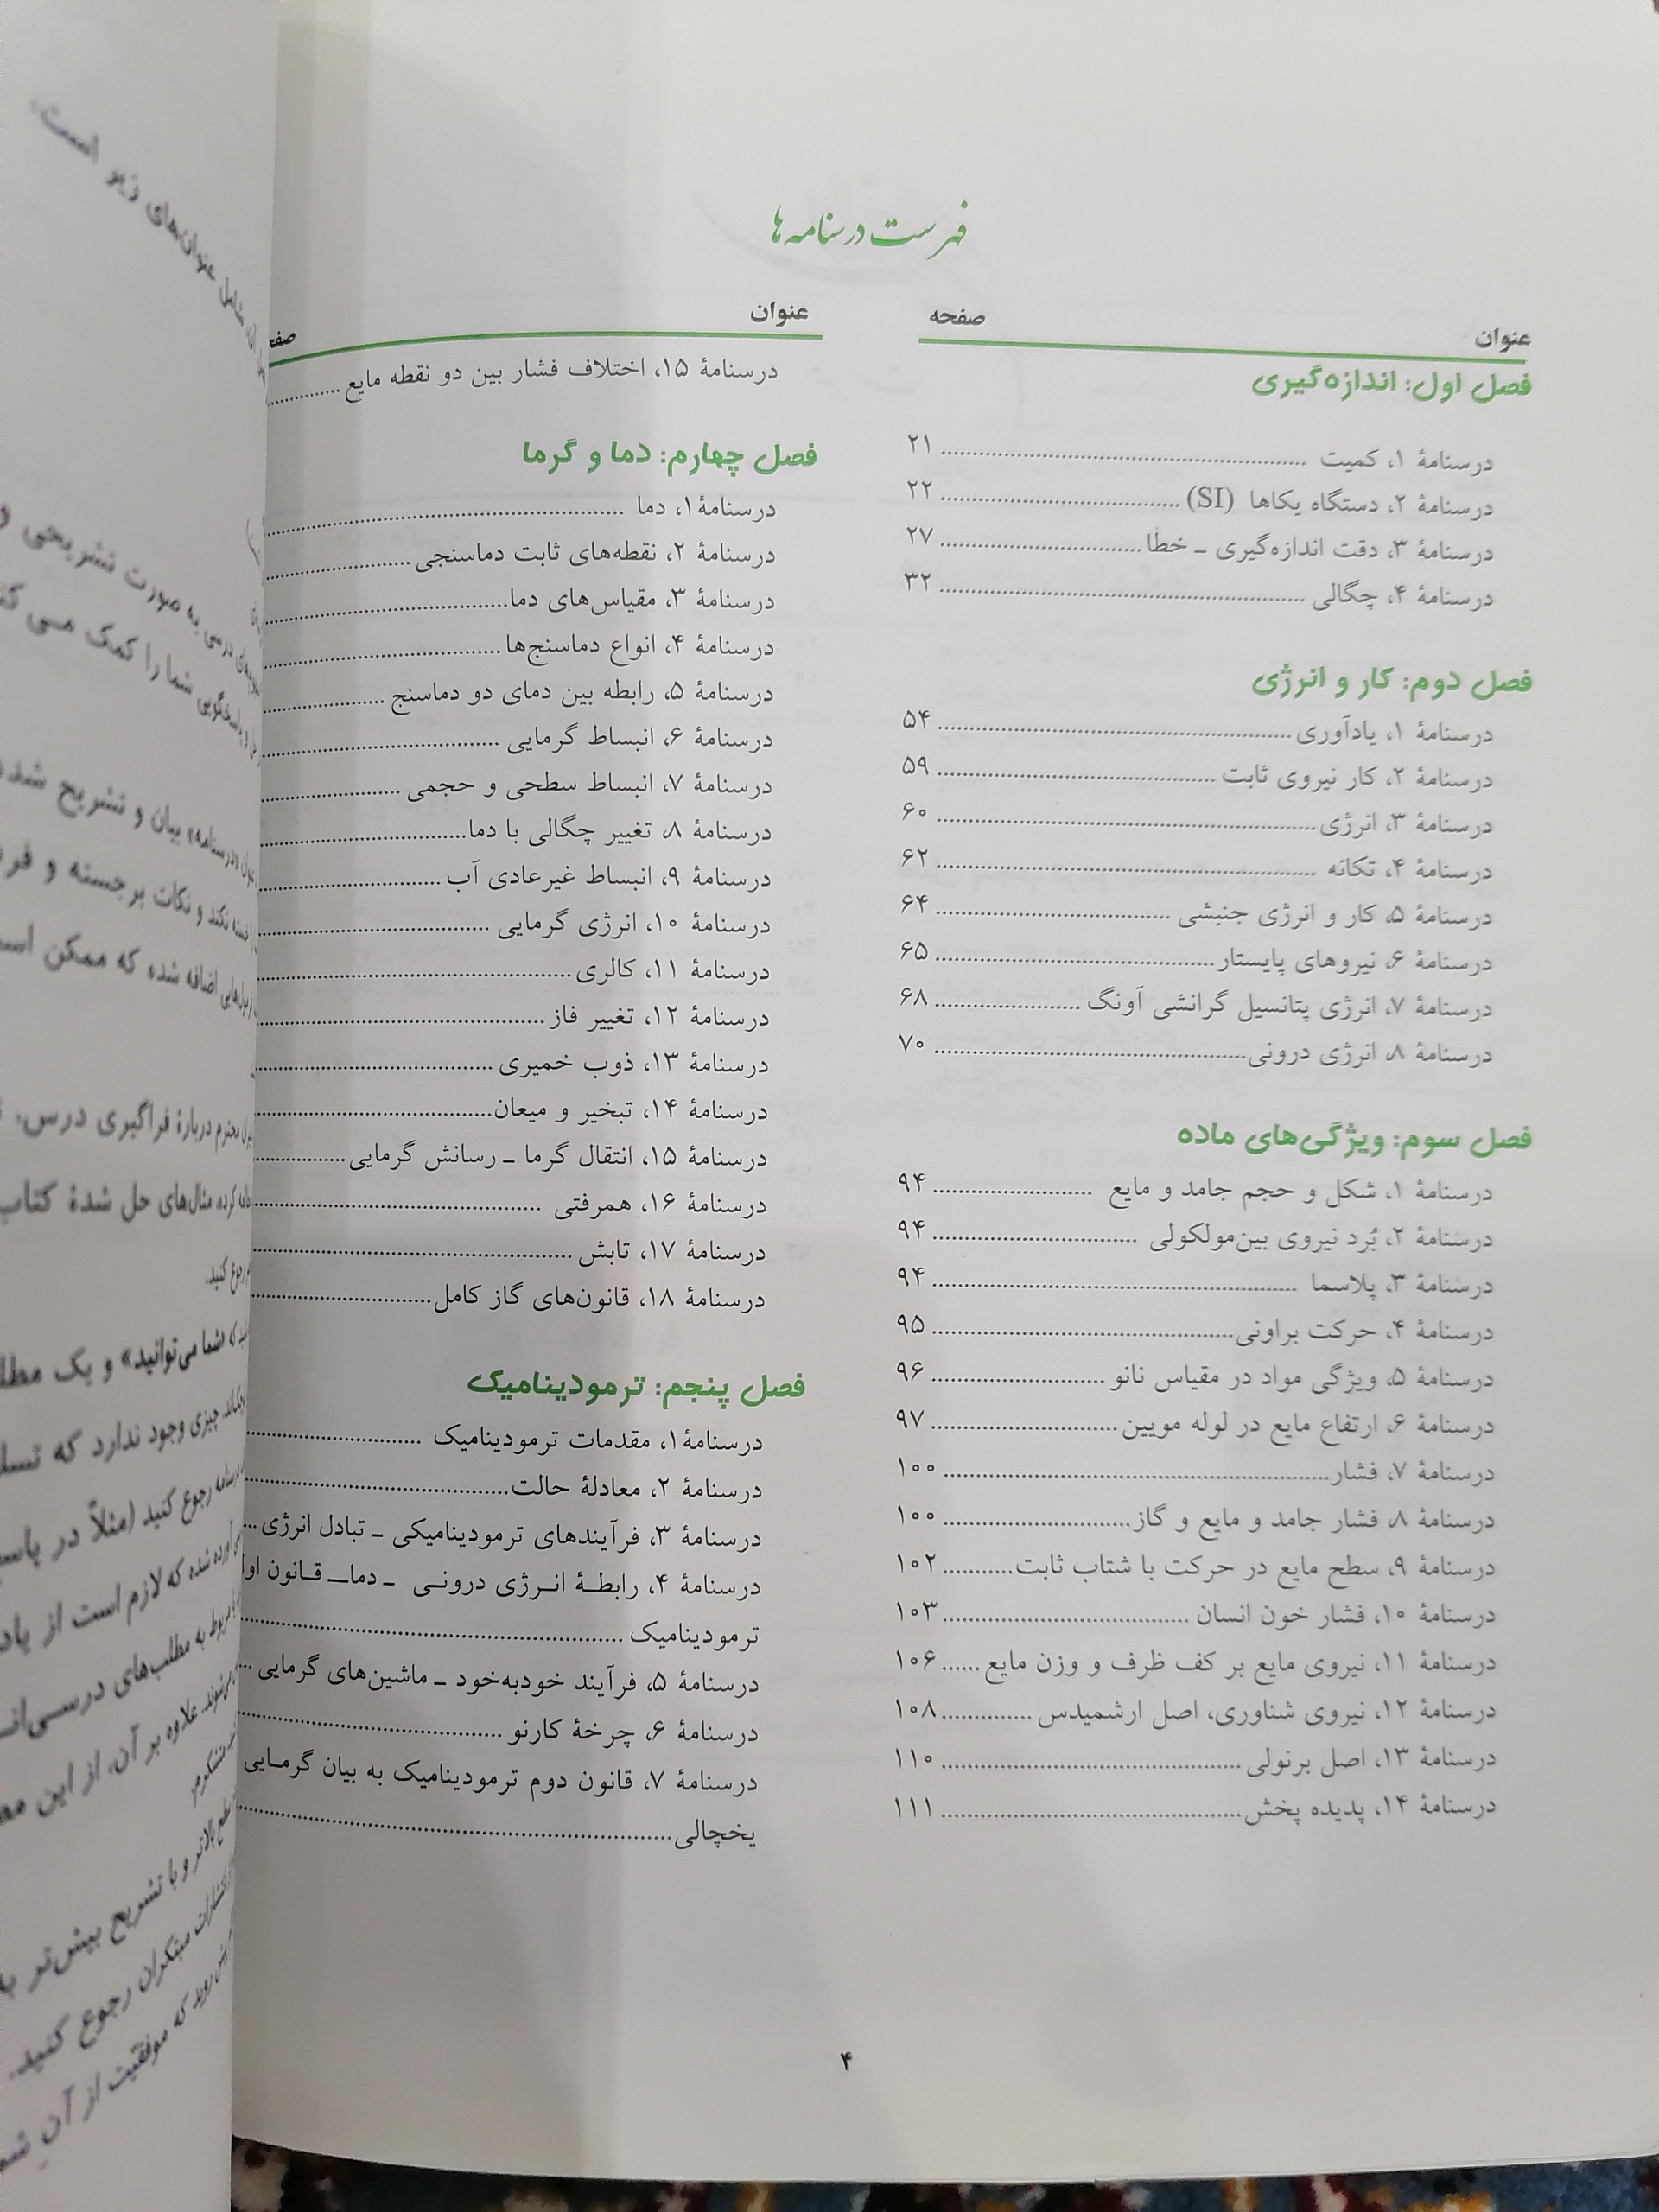 فهرست درسنامه‌ها
عنوان صفحه
فصل اول: اندازه‌گیری
درسنامهٔ ۱، کمیت ۲۱
درسنامهٔ ۲، دستگاه یکاها (SI) ۲۲
درسنامهٔ ۳، دقت اندازه‌گیری ـ خطا ۲۷
درسنامهٔ ۴، چگالی ۳۲
فصل دوم: کار و انرژی
درسنامهٔ ۱، یادآوری ۵۴
درسنامهٔ ۲، کار نیروی ثابت ۵۹
درسنامهٔ ۳، انرژی ۶۰
درسنامهٔ ۴، تکانه ۶۲
درسنامهٔ ۵، کار و انرژی جنبشی ۶۴
درسنامهٔ ۶، نیروهای پایستار ۶۵
درسنامهٔ ۷، انرژی پتانسیل گرانشی آونگ ۶۸
درسنامهٔ ۸، انرژی درونی ۷۰
فصل سوم: ویژگی‌های ماده
درسنامهٔ ۱، شکل و حجم جامد و مایع ۹۴
درسنامهٔ ۲، بُرد نیروی بین‌مولکولی ۹۴
درسنامهٔ ۳، پلاسما ۹۴
درسنامهٔ ۴، حرکت براونی ۹۵
درسنامهٔ ۵، ویژگی مواد در مقیاس نانو ۹۶
درسنامهٔ ۶، ارتفاع مایع در لوله مویین ۹۷
درسنامهٔ ۷، فشار ۱۰۰
درسنامهٔ ۸، فشار جامد و مایع و گاز ۱۰۰
درسنامهٔ ۹، سطح مایع در حرکت با شتاب ثابت ۱۰۲
درسنامهٔ ۱۰، فشار خون انسان ۱۰۳
درسنامهٔ ۱۱، نیروی مایع بر کف ظرف و وزن مایع ۱۰۶
درسنامهٔ ۱۲، نیروی شناوری، اصل ارشمیدس ۱۰۸
درسنامهٔ ۱۳، اصل برنولی ۱۱۰
درسنامهٔ ۱۴، پدیده پخش ۱۱۱
عنوان
درسنامهٔ ۱۵، اختلاف فشار بین دو نقطه مایع
فصل چهارم: دما و گرما
درسنامهٔ ۱، دما
درسنامهٔ ۲، نقطه‌های ثابت دماسنجی
درسنامهٔ ۳، مقیاس‌های دما
درسنامهٔ ۴، انواع دماسنج‌ها
درسنامهٔ ۵، رابطه بین دمای دو دماسنج
درسنامهٔ ۶، انبساط گرمایی
درسنامهٔ ۷، انبساط سطحی و حجمی
درسنامهٔ ۸، تغییر چگالی با دما
درسنامهٔ ۹، انبساط غیرعادی آب
درسنامهٔ ۱۰، انرژی گرمایی
درسنامهٔ ۱۱، کالری
درسنامهٔ ۱۲، تغییر فاز
درسنامهٔ ۱۳، ذوب خمیری
درسنامهٔ ۱۴، تبخیر و میعان
درسنامهٔ ۱۵، انتقال گرما ـ رسانش گرمایی
درسنامهٔ ۱۶، همرفتی
درسنامهٔ ۱۷، تابش
درسنامهٔ ۱۸، قانون‌های گاز کامل
فصل پنجم: ترمودینامیک
درسنامهٔ ۱، مقدمات ترمودینامیک
درسنامهٔ ۲، معادلهٔ حالت
درسنامهٔ ۳، فرآیندهای ترمودینامیکی ـ تبادل انرژی
درسنامهٔ ۴، رابطهٔ انرژی درونی ـ دما ـ قانون
ترمودینامیک
درسنامهٔ ۵، فرآیند خودبه‌خود ـ ماشین‌های گرمایی
درسنامهٔ ۶، چرخهٔ کارنو
درسنامهٔ ۷، قانون دوم ترمودینامیک به بیان گرمایی
یخچالی
۴
عنوان‌های زیر است.
درسی به صورت تشریحی و
شما را کمک می
بیان و تشریح
و نکات برجسته و
اضافه شده که ممکن
محترم دربارهٔ فراگیری درس،
مثال‌های حل شدهٔ کتاب
رجوع کنید.
که «شما می‌توانید» و یک
چیزی وجود ندارد که
رجوع کنید (مثلاً در
آورده شده که لازم است از
مربوط به مطلب‌های
علاوه بر آن، از این
بالاتر و با تشریح بیش‌تر
انتشارات مبتکران رجوع کنید.
که موفقیت از آن